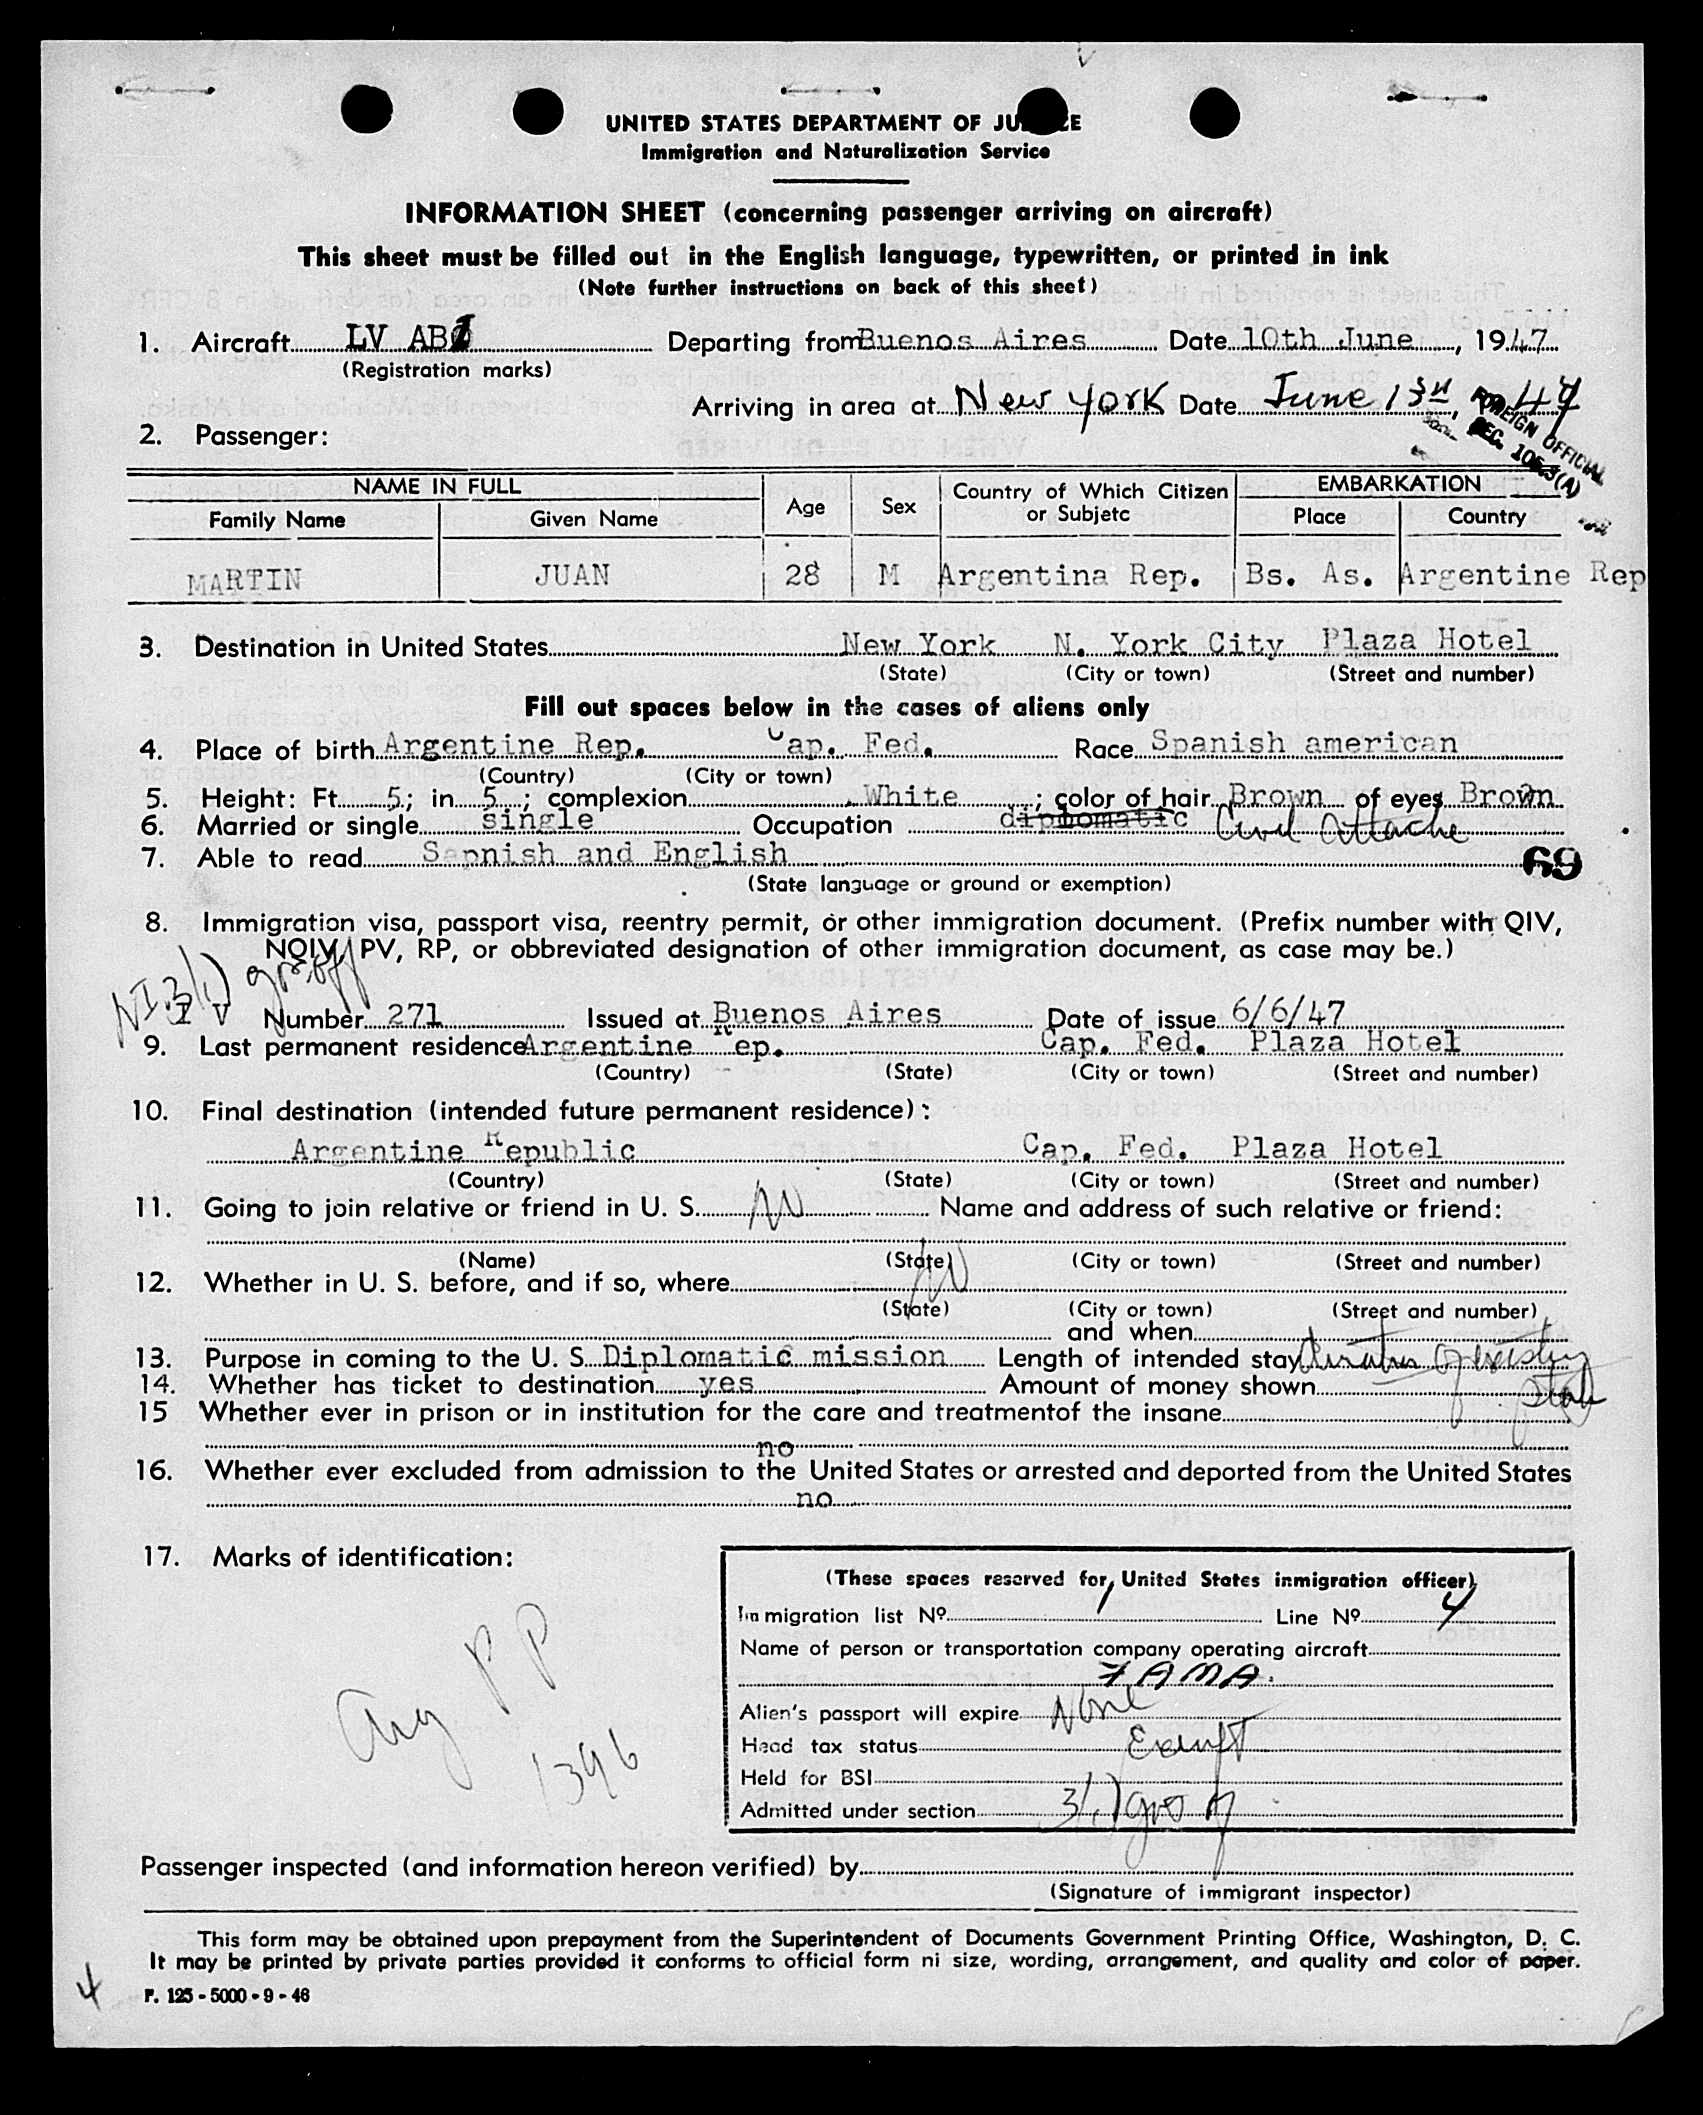 UNITED STATES DEPARTMENT OF JU E
Immigration and Naturalization Service
INFORMATION SHEET (concerning passenger arriving on aircraft)
This sheet must be filled out in the English language, typewritten, or printed in ink
(Note further instructions on back of this sheet)
1. Aircraft LV AB Departing from Buenos Aires Date 10th June, 1947
(Registration marks)
Arriving in area at New York Date June 13th, 1947
FOREIGN OFFICIAL
SEC. 10 (A)
2. Passenger:
NAME IN FULL Age Sex Country of Which Citizen or Subjetc EMBARKATION
Family Name Given Name Place Country
MARTIN JUAN 28 M Argentina Rep. Bs. As. Argentine Rep
3. Destination in United States New York N. York City Plaza Hotel
(State) (City or town) (Street and number)
Fill out spaces below in the cases of aliens only
4. Place of birth Argentine Rep. Cap. Fed. Race Spanish american
(Country) (City or town)
5. Height: Ft. 5; in. 5; complexion White; color of hair Brown of eyes Brown
6. Married or single single Occupation diplomatic Civil Attache
7. Able to read Sapnish and English
69
(State language or ground or exemption)
8. Immigration visa, passport visa, reentry permit, or other immigration document. (Prefix number with QIV,
NQIV, PV, RP, or obbreviated designation of other immigration document, as case may be.)
Number 271 Issued at Buenos Aires Date of issue 6/6/47
9. Last permanent residence Argentine Rep. Cap. Fed. Plaza Hotel
(Country) (State) (City or town) (Street and number)
10. Final destination (intended future permanent residence):
Argentine Republic Cap. Fed. Plaza Hotel
(Country) (State) (City or town) (Street and number)
11. Going to join relative or friend in U. S. No Name and address of such relative or friend:
(Name) (State) (City or town) (Street and number)
12. Whether in U. S. before, and if so, where No
(State) (City or town) (Street and number)
and when
13. Purpose in coming to the U. S. Diplomatic mission Length of intended stay Duration of
14. Whether has ticket to destination yes Amount of money shown
15 Whether ever in prison or in institution for the care and treatmentof the insane
no
16. Whether ever excluded from admission to the United States or arrested and deported from the United States
no
17. Marks of identification:
Arg PP
1396
(These spaces reserved for United States inmigration officer)
Immigration list Nº 1 Line Nº 4
Name of person or transportation company operating aircraft
FAMA.
Alien's passport will expire None
Head tax status Exempt
Held for BSI
Admitted under section 3(1)
Passenger inspected (and information hereon verified) by
(Signature of immigrant inspector)
This form may be obtained upon prepayment from the Superintendent of Documents Government Printing Office, Washington, D. C.
It may be printed by private parties provided it conforms to official form ni size, wording, arrangement, and quality and color of paper.
4
F. 125 - 5000 - 9 - 46